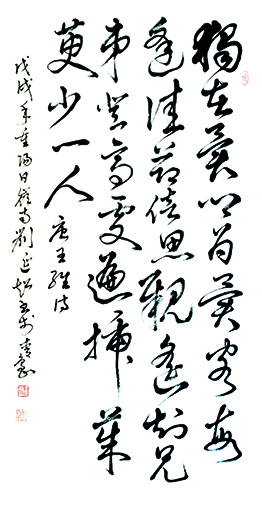 獨在異鄉為異客每
逢佳節倍思親遙知兄
弟登高處遍插茱
萸少一人 唐王維詩
戊戌年重陽日嶺南劉延